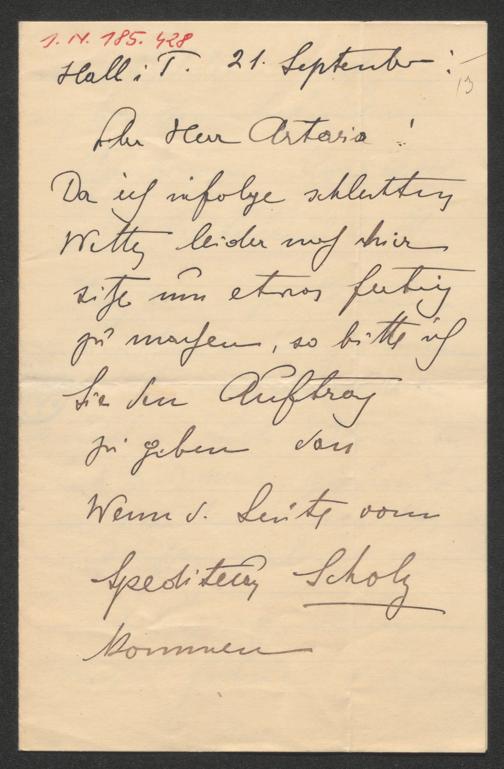 I.N. 185.428
Hall i T. 21. September :
13
Herr Artaria !
Da ich infolge schlechten
Wetters leider noch hier
sitze um etwas fertig
zu machen, so bitte ich
Sie den Auftrag
zu geben dass
Wenn d. Leute vom
Spediteur Scholz
kommen